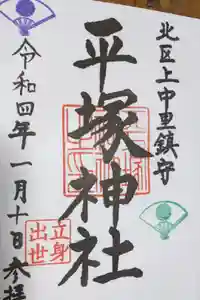 北区上中里鎮守
平塚神社
立身
出世
令和四年一月十日参拝